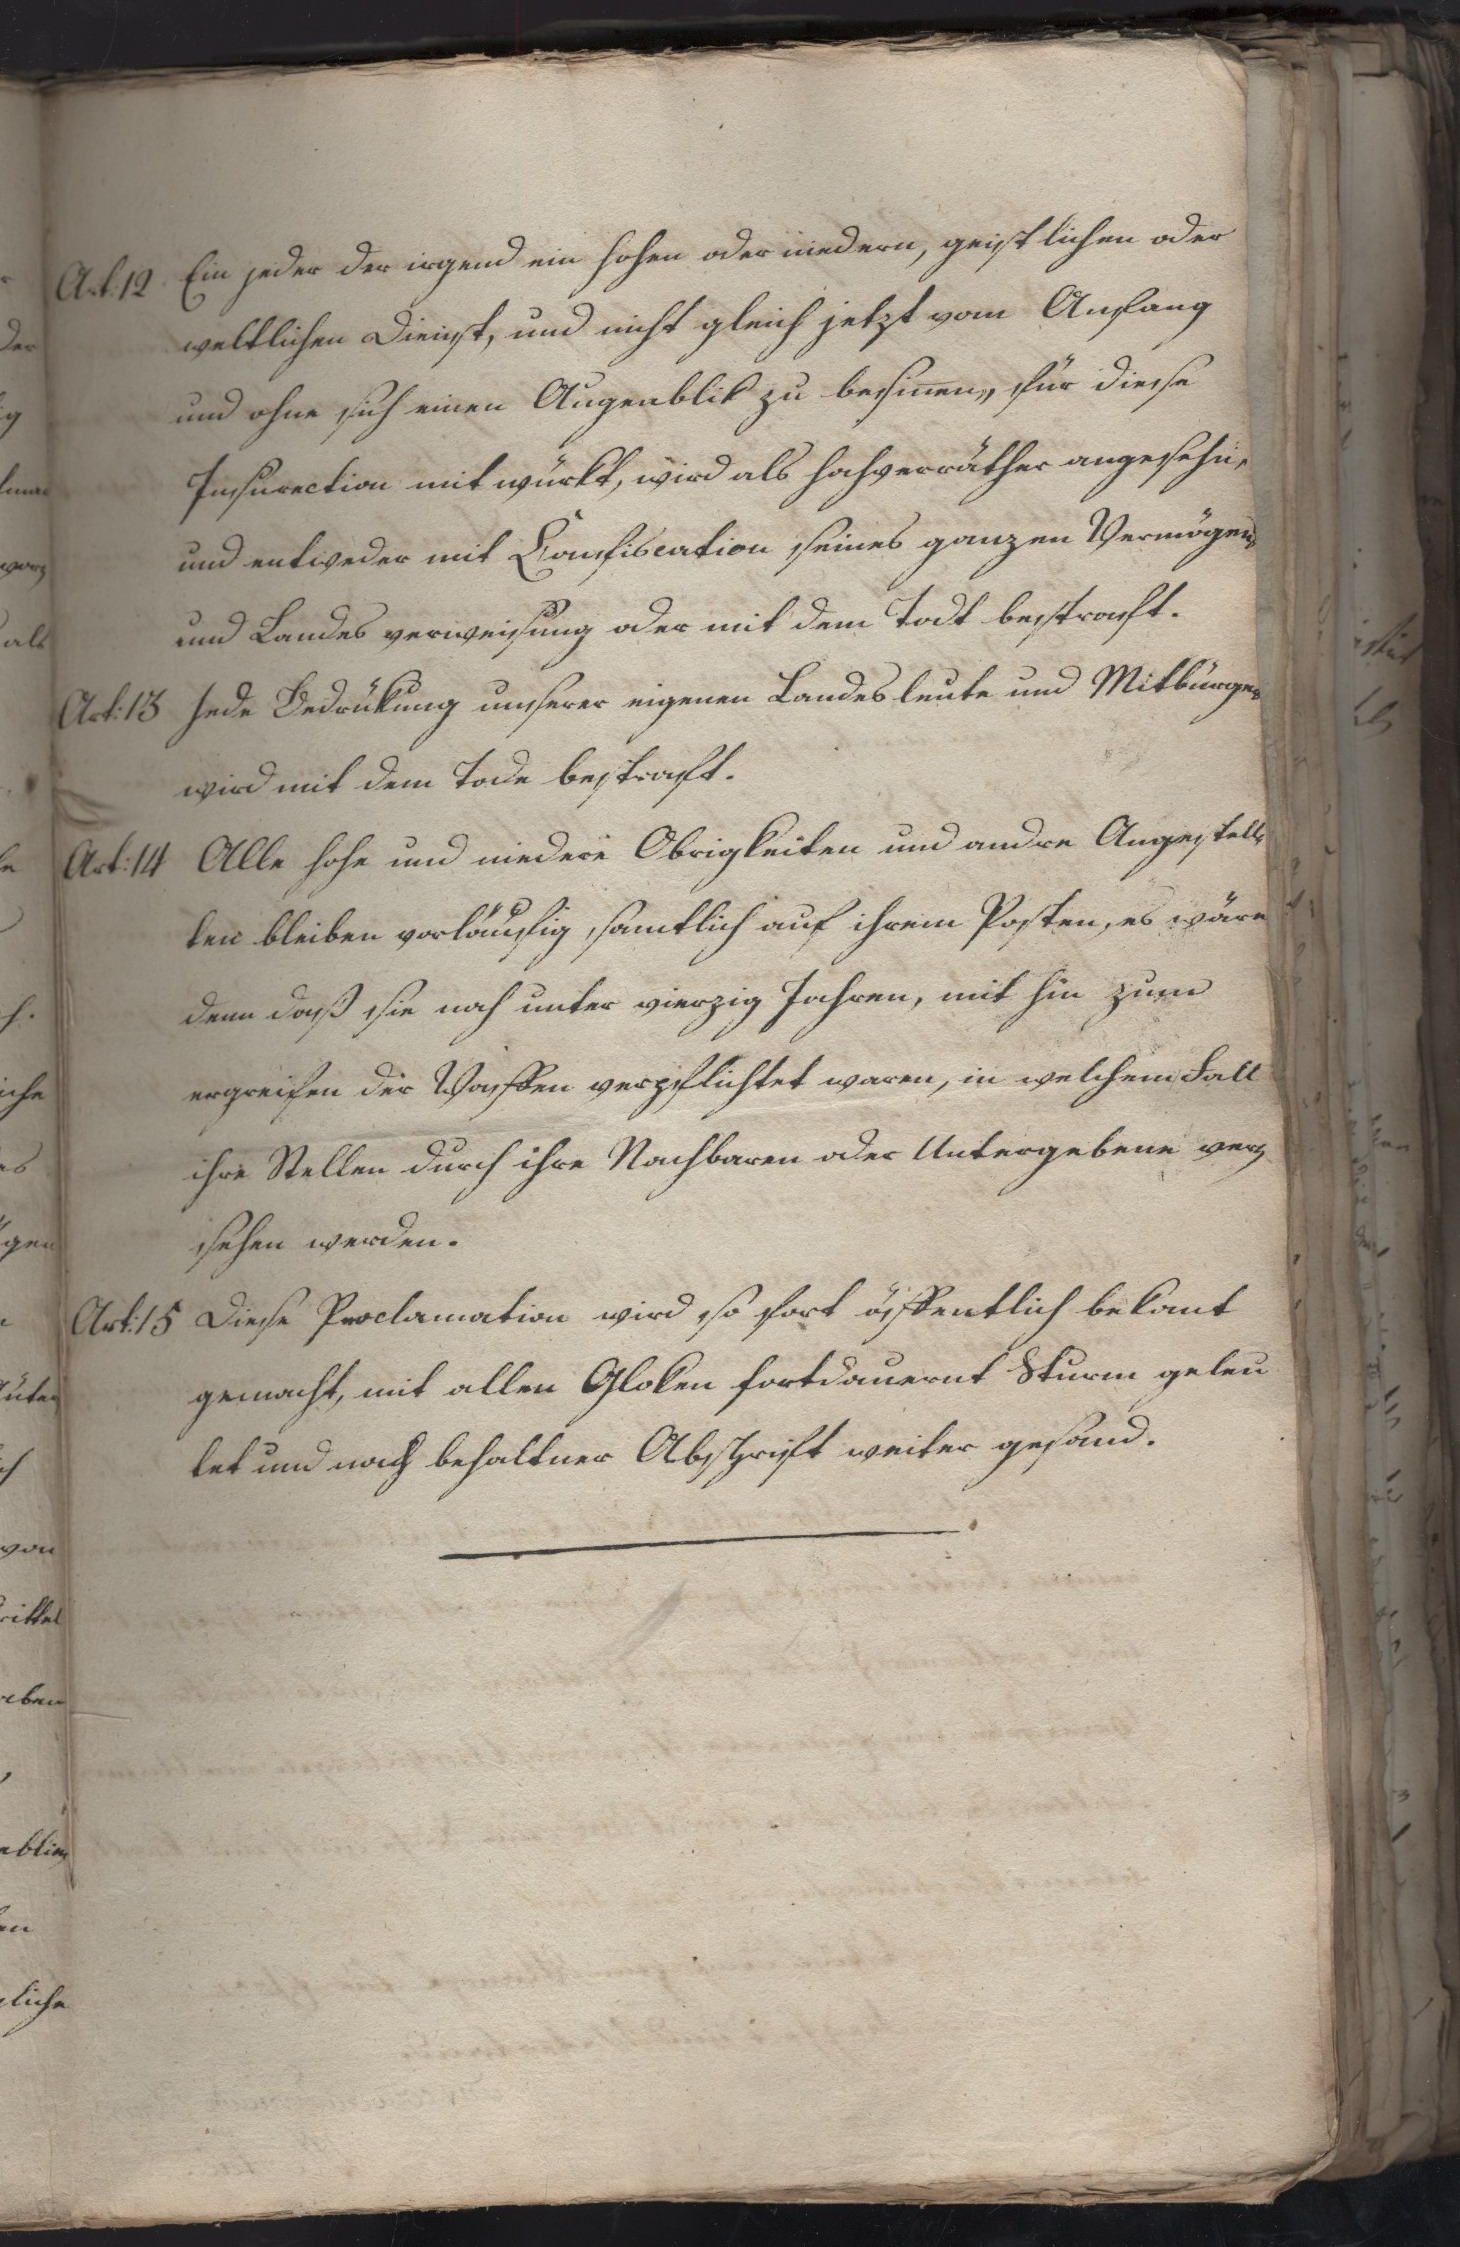 Art: 12 Ein jeder der irgend ein hohen oder niedern, geistlichen oder
weltlichen Dienst, und nicht gleich jetzt vom Anfang
und ohne sich einen Augenblik zu besinnen, für diese
Insurection mit würkt, wird als Hochverräther angesehn,
und entweder mit Confiscation seines ganzen Vermögens
und Landes verweisung oder mit dem Todt bestraft.
Art: 13 Jede Bedrükung unserer eigenen Landesleute und Mitbürger
wird mit dem Tode bestraft.
Art: 14 Alle hohe und niedere Obrigkeiten und andre Angestell-
ten bleiben vorläufig samtlich auf ihrem Posten, es wäre
denn daß sie noch unter vierzig Jahren, mit hin zum
ergreifen der Waffen verpflichtet waren, in welchem Fall
ihre Stellen durch ihre Nachbaren oder Untergebene ver-
sehen werden.
Art: 15 Diese Proclamation wird so fort öffentlich bekant
gemacht, mit allen Gloken fortdauernt Sturm geleu
tet und nach behaltner Abschrift weiter gesand.